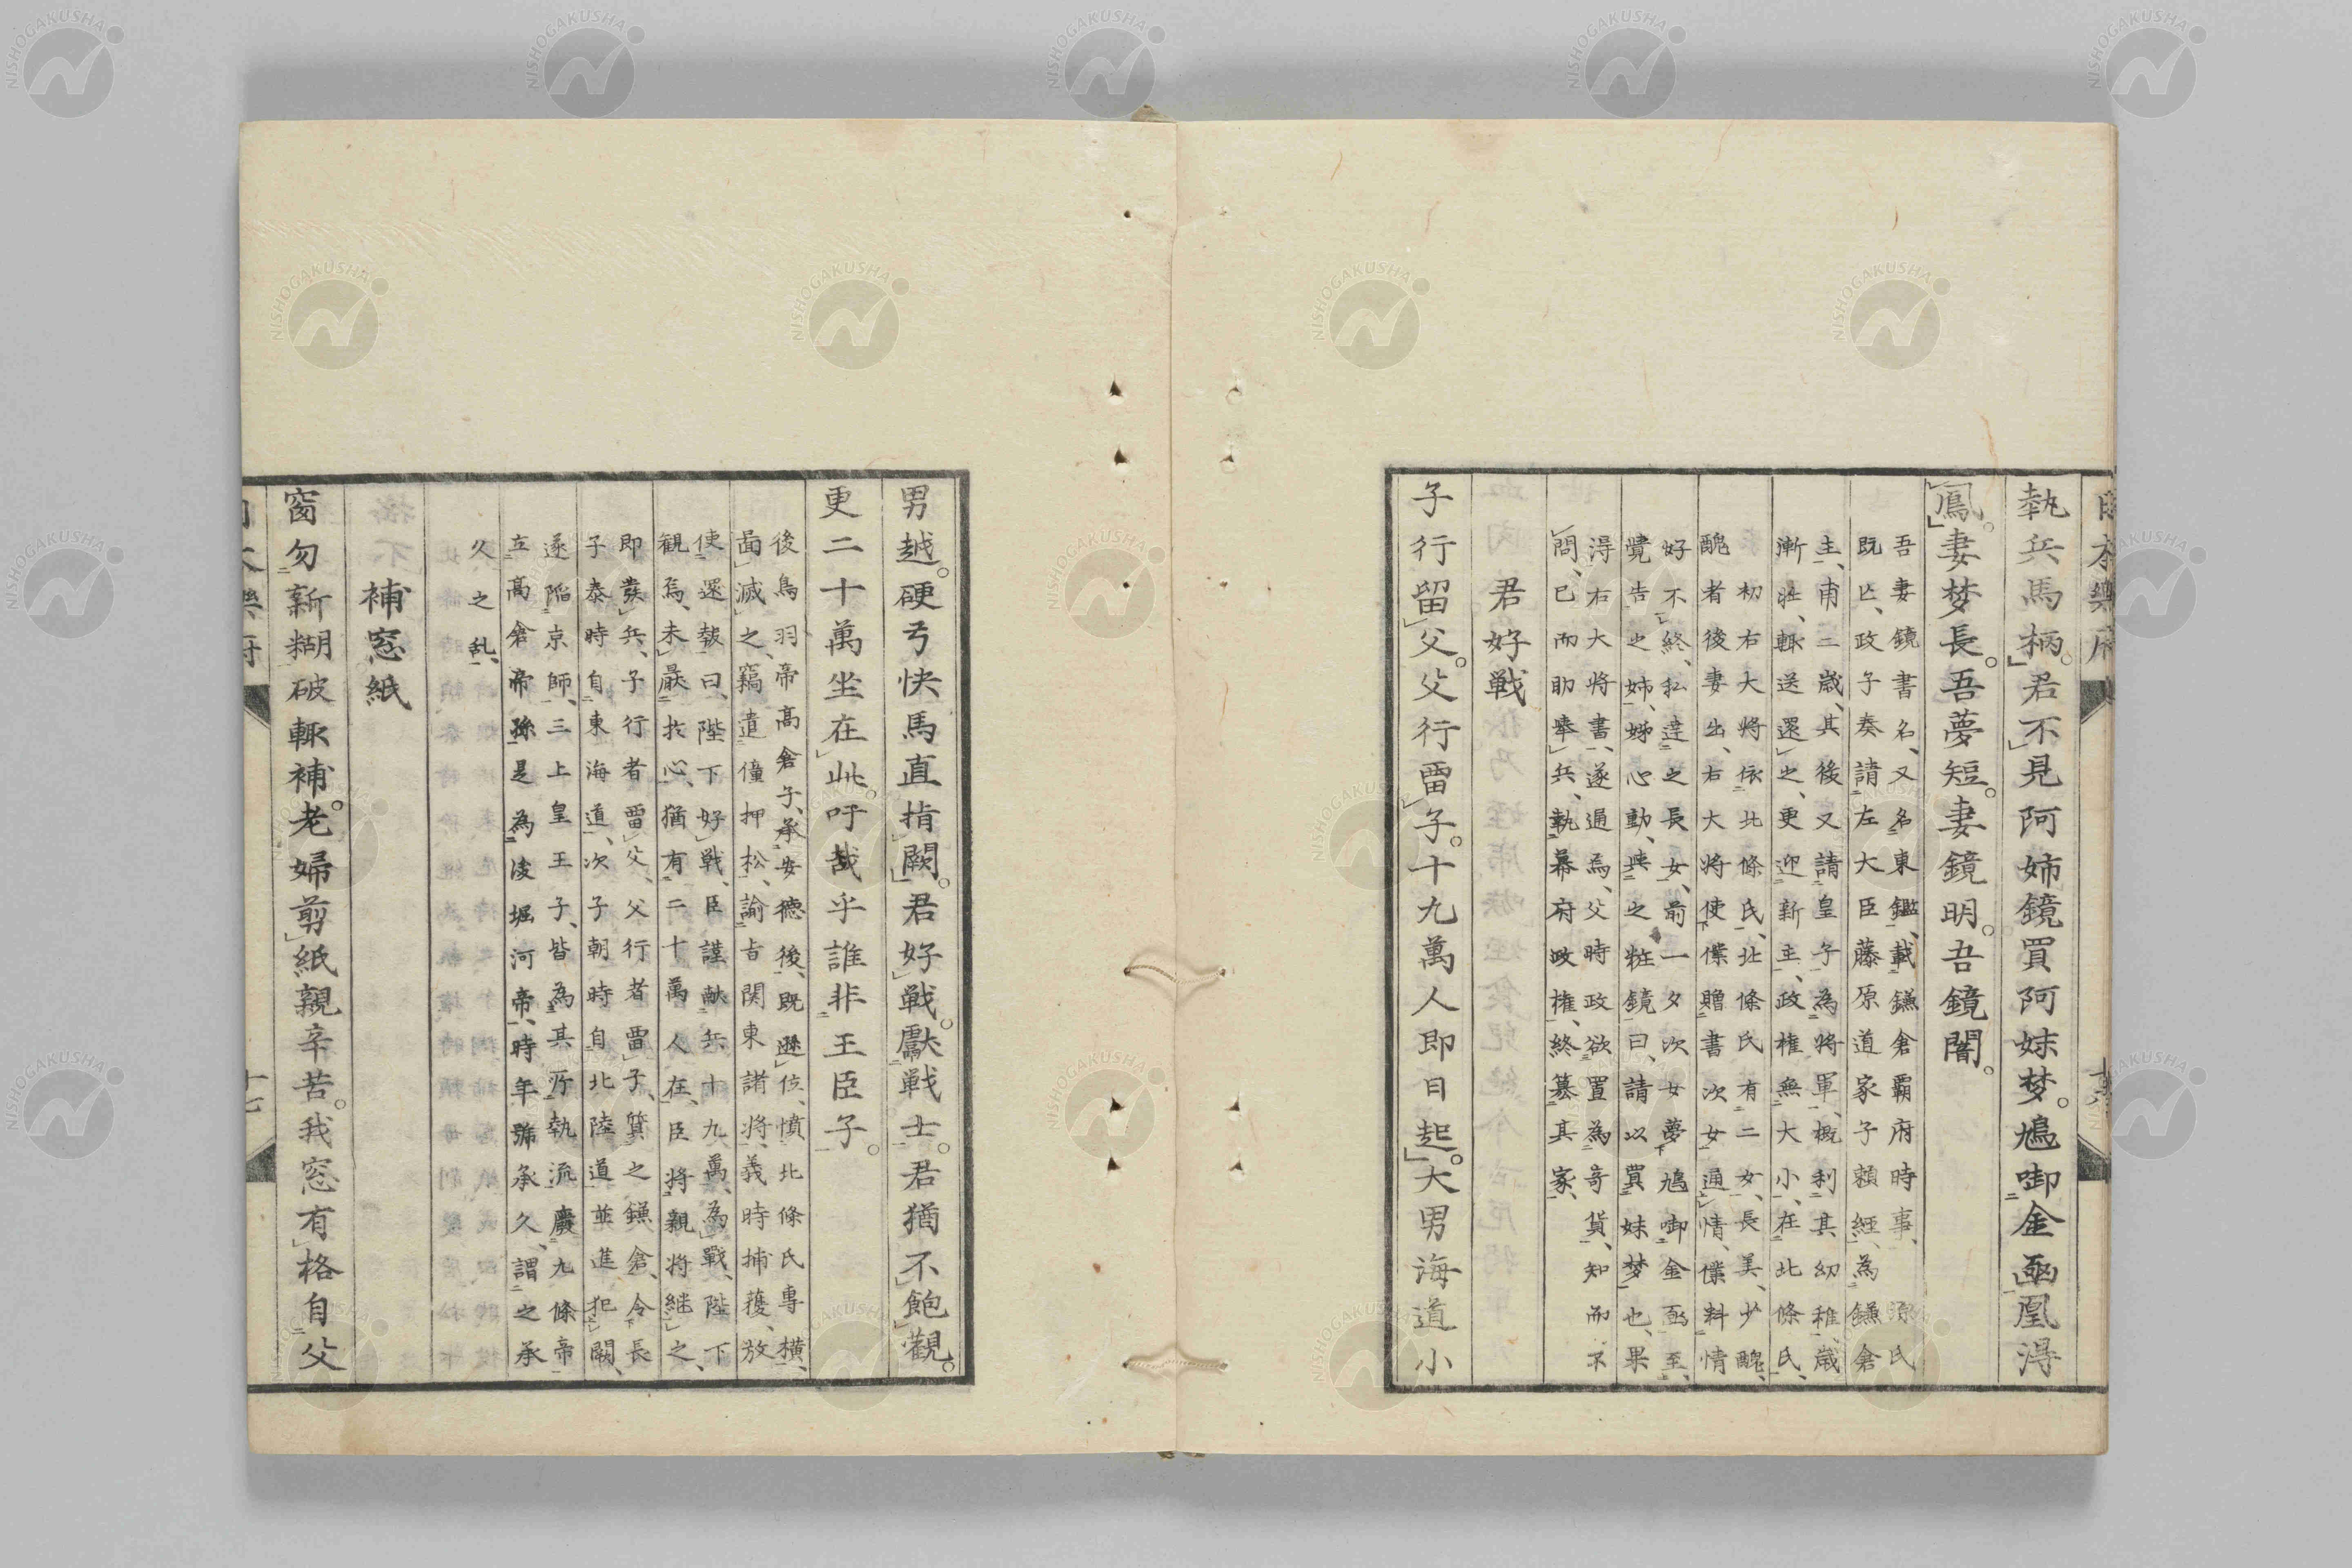 執兵馬柄君不見阿姉鏡買阿妹梦鳩啣金凾凰淂
鳳妻梦長吾夢短妻鏡明吾鏡闇
吾妻鏡書名又名東鑑載鎌倉覇府時事源氏
既亾政子奏請左大臣藤原道家子頼経為鎌倉
主甫二歳其後又請皇子為将軍概利其幼稚歳
漸壯輙送還之更迎新主政権無大小在北條氏
初右大将依北條氏北條氏有二女長美少醜
醜者後妻出右大将使僕贈書次女通情僕料情
好不終私達之長女前一夕次女夢鳩啣金凾至
覺告之姉姊心動與之粧鏡曰請以買妹梦也果
淂右大将書遂通焉父時政欲置為奇貨知而不
問已而助挙兵執幕府政権終簒其家
君好戦
子行留父父行畱子十九萬人即日起大男海道小
男越硬弓快馬直指闕君好戦獻戦士君猶不飽觀
更二十萬坐在此吁哉乎誰非王臣子
後鳥羽帝高倉子承安徳後既遜位憤北條氏專横
啚滅之竊遣僮押松諭㫖関東諸将義時捕獲放
使還報曰陛下好戦臣謹献兵十九萬為戰陛下
観焉未厭於心猶有二十萬人在臣将親将継之
即發兵子行者畱父父行者畱子箕之鎌倉令長
子泰時自東海道次子朝時自北陸道並進犯闕
遂陥京師三上皇王子皆為其所執流廢九條帝
立高倉帝孫是為後堀河帝時年號承久謂之承
久之乱
補窓紙
窗勿新糊破輙補老婦剪紙親辛苦我窓有格自父
日本樂府
十六
日本樂府
十七
NISHOGAKUSHA